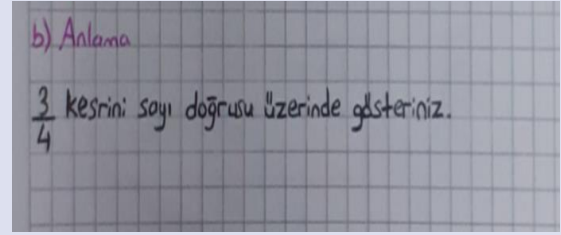 b) Anlama
3/4 kesrini sayı doğrusu üzerinde gösteriniz.